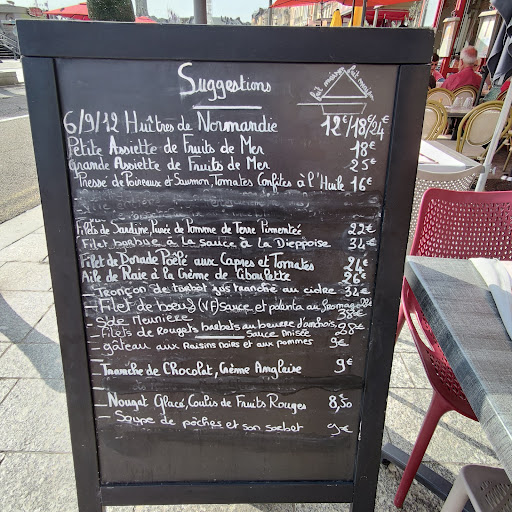 Suggestions
fait maison fait maison
6/9/12 Huîtres de Normandie 12€/18€/24€
Petite Assiette de Fruits de Mer 18€
Grande Assiette de Fruits de Mer 25€
Pressé de Poireaux et Saumon, Tomates Confites à l'Huile 16€
Filets de Sardine, Purée de Pomme de Terre Pimentée 22€
Filet barbue à la sauce à la Dieppoise 34€
Filet de Dorade Poêlé aux Capres et Tomates 24€
Aile de Raie à la Crème de Ciboulette 26€
- Tronçon de turbot jus tranché au cidre 32€
- Filet de boeuf (VF) sauce et polenta au fromage
- Sole Meunière 38€
- Filets de Rougets barbets au beurre d'anchois, 28€
Sauce Anisée
- gâteau aux Raisins noirs et aux pommes 9€
- Tranche de Chocolat, Crème Anglaise 9€
- Nougat Glacé, Coulis de Fruits Rouges 8,50
- Soupe de pêches et son sorbet 9€